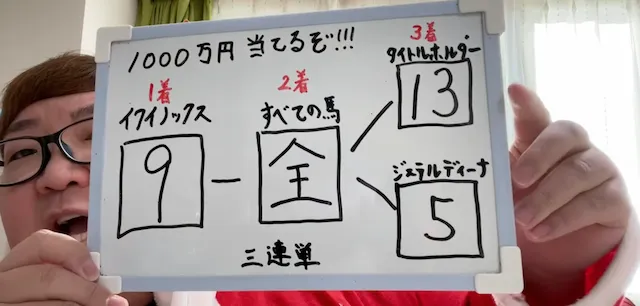 1000万円当てるぞ!!!
1着
イクイノックス
9
2着
すべての馬
全
3着
タイトルホルダー
13
ジェラルディーナ
5
三連単